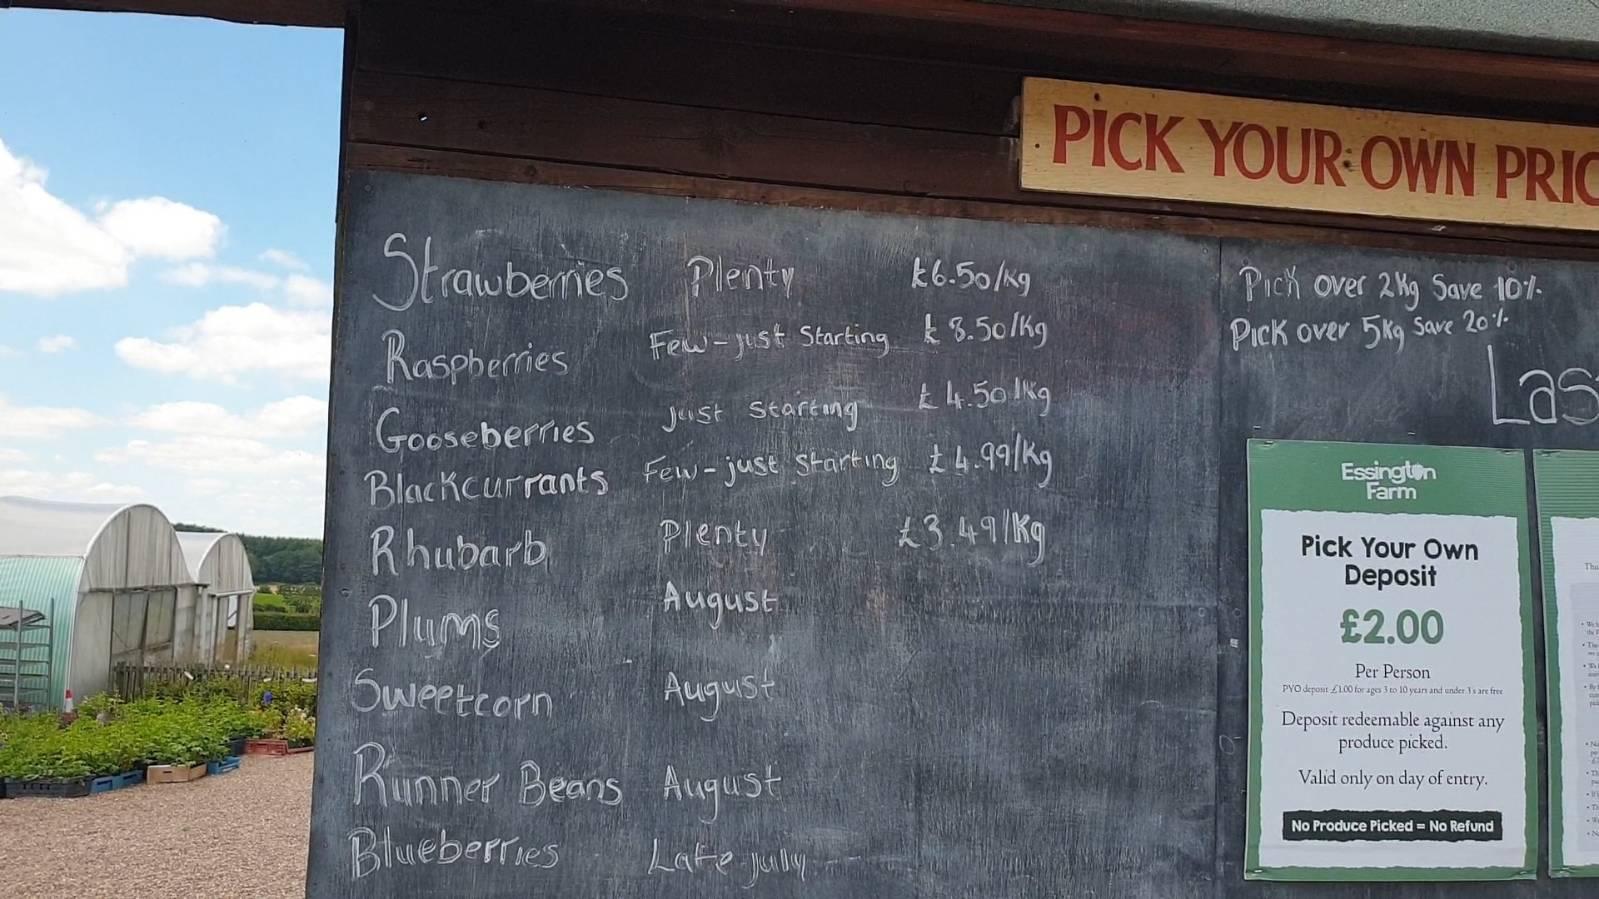 PICK YOUR OWN PRIC
Strawberries Plenty £6.50/Kg
Raspberries Few-just Starting £8.50/Kg
Gooseberries just starting £4.50/Kg
Blackcurrants Few-just starting £4.99/Kg
Rhubarb Plenty £3.49/Kg
Plums August
Sweetcorn August
Runner Beans August
Blueberries Late july
Pick over 2Kg Save 10%
Pick over 5Kg Save 20%
Las
Essington
Farm
Pick Your Own
Deposit
£2.00
Per Person
PYO deposit £1.00 for ages 3 to 10 years and under 3's are free
Deposit redeemable against any
produce picked.
Valid only on day of entry.
No Produce Picked = No Refund